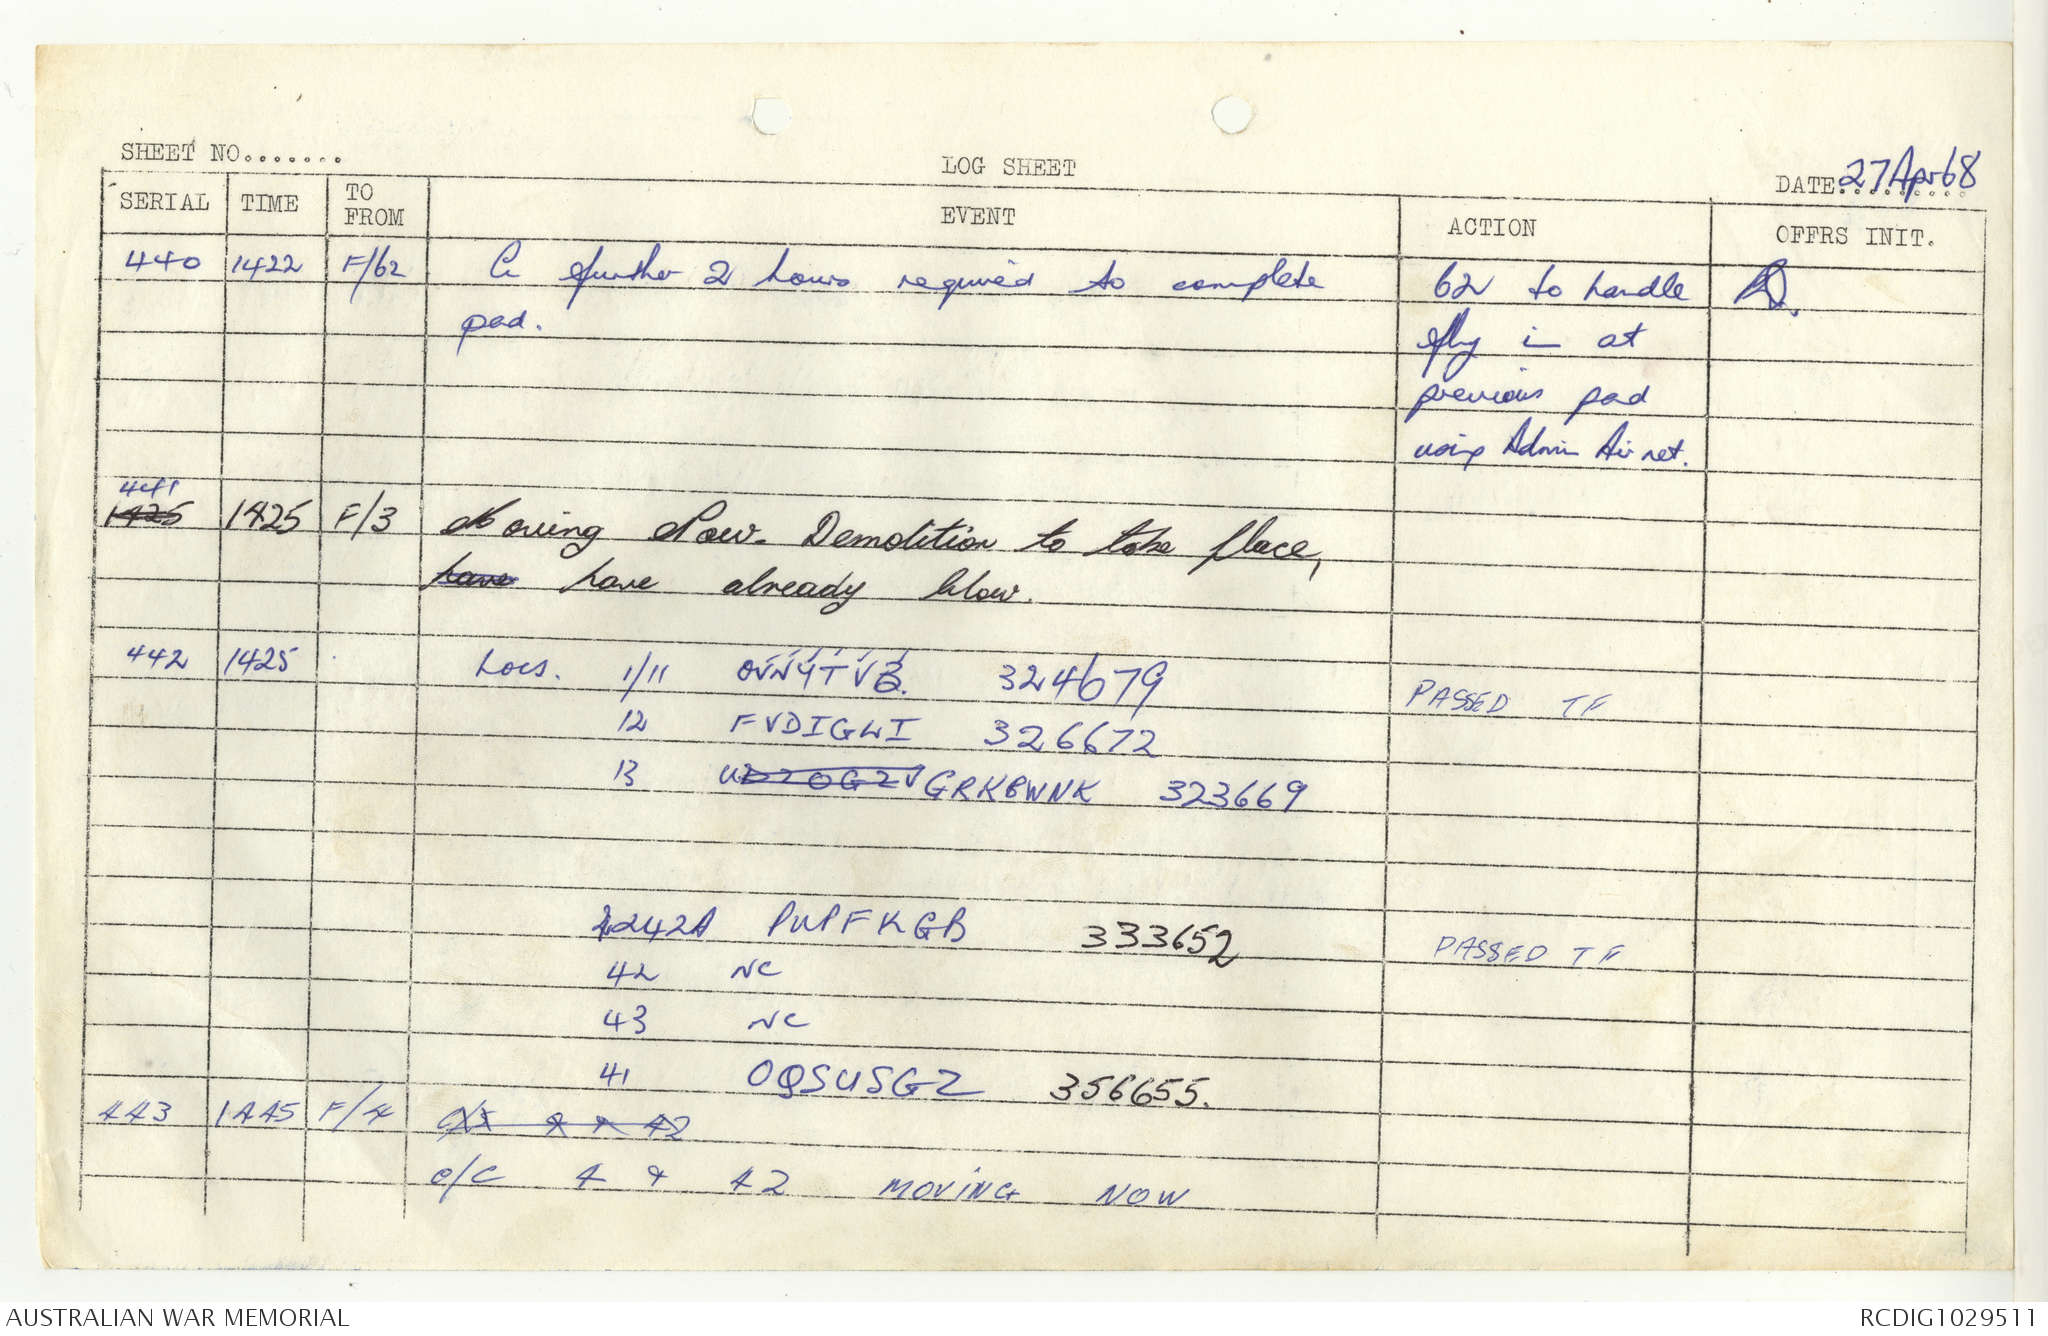 SHEET NO.......
LOG SHEET
DATE.........27 Apr 68
SERIAL TIME TO FROM EVENT ACTION OFFRS INIT.
440 1422 F/62 A further 2 hours required to complete 62 to handle
pad. fly in at
previous pad
using Admin Air net.
441
1425 1425 F/3 Moving Now. Demolition to take place,
have have already blow.
442 1425 Locs. 1/11 OVNYTVB 324679 PASSED TF
12 FVDIGWI 326672
13 GRKBWNK 323669
242A PUPFKGB 333652 PASSED TF
42 NC
43 NC
41 OQSUSGZ 356655.
443 1445 F/4
C/C 4 & 42 MOVING NOW
AUSTRALIAN WAR MEMORIAL
RCDIG1029511